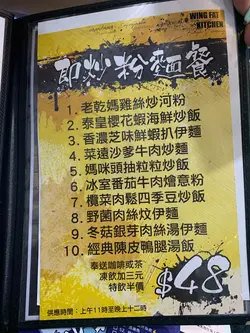 WING FAT
KITCHEN
即炒粉麵餐
1. 老乾媽雞絲炒河粉
2. 泰皇櫻花蝦海鮮炒飯
3. 香濃芝味鮮蝦扒伊麵
4. 菜遠沙爹牛肉炒麵
5. 媽咪頭抽粒粒炒飯
6. 冰室番茄牛肉燴意粉
7. 欖菜肉鬆四季豆炒飯
8. 野菌肉絲炆伊麵
9. 冬菇銀芽肉絲湯伊麵
10. 經典陳皮鴨腿湯飯
奉送咖啡或茶
凍飲加三元
特飲半價
$48
供應時間：上午11時至晚上十二時